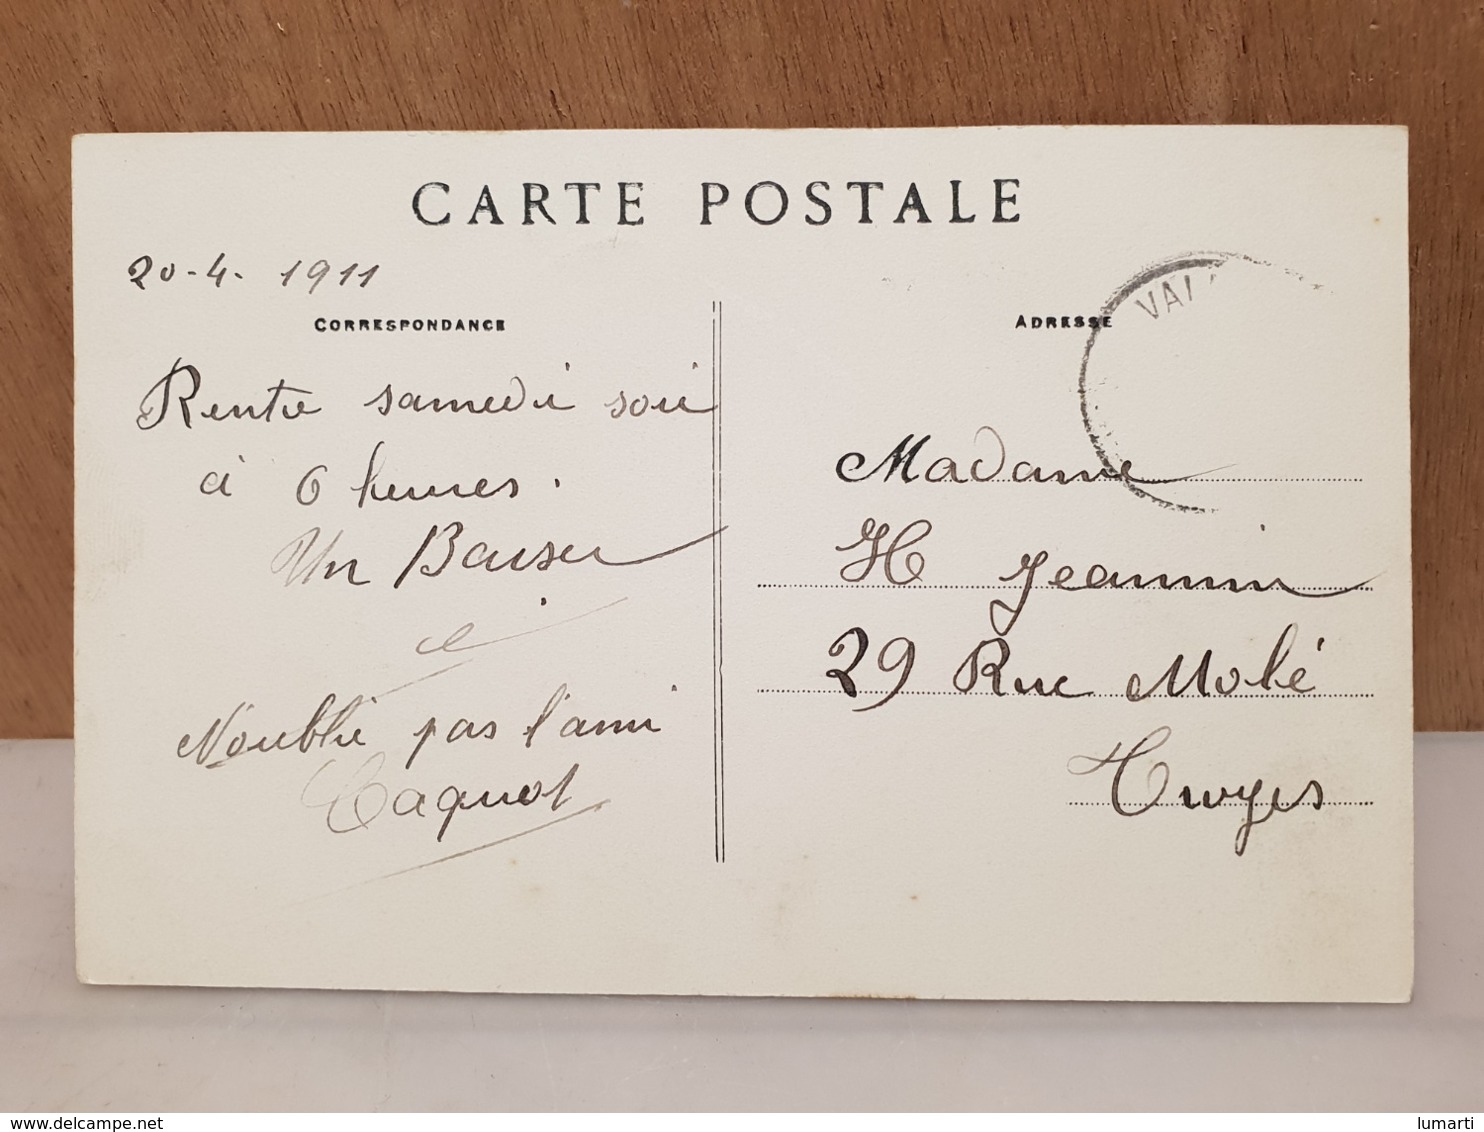 CARTE POSTALE
20-4-1911
CORRESPONDANCE
Rentre samedi soir
à 6 heures.
Un Baiser
N'oublie pas l'ami
Caquot
ADRESSE
VAL
Madame
H Jeannin
29 Rue Molé
Troyes
delcampe.net
lumarti